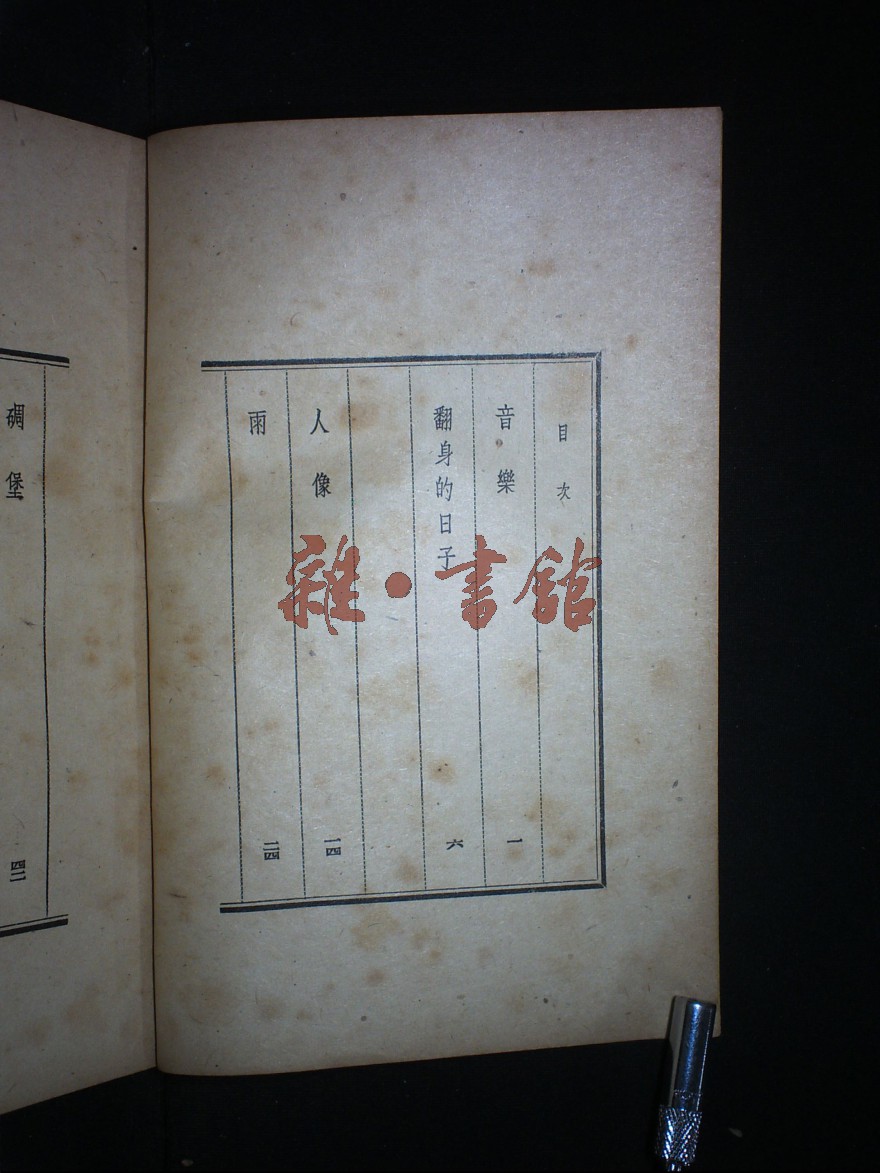 目次
音樂 一
翻身的日子 六
人像 一四
雨 二四
碉堡 四二
雜·書館